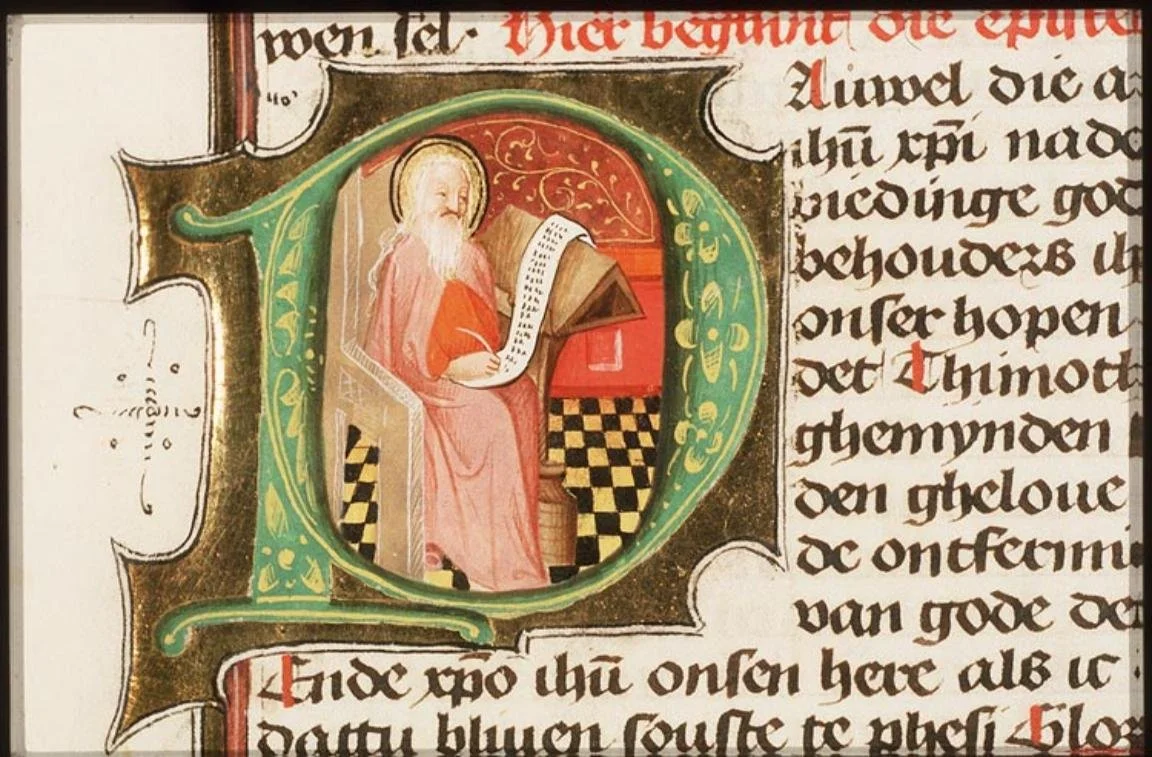 wen sel· Hier begint die epistel
PAuwel die a
ihū xpī nade
biedinge god
behouders ih
onser hopen
det Thimoth
ghemynden
den gheloue
de ontfermi
van gode de
Ende xpō ihū onsen here als ic
dattu bliuen souste te phesi